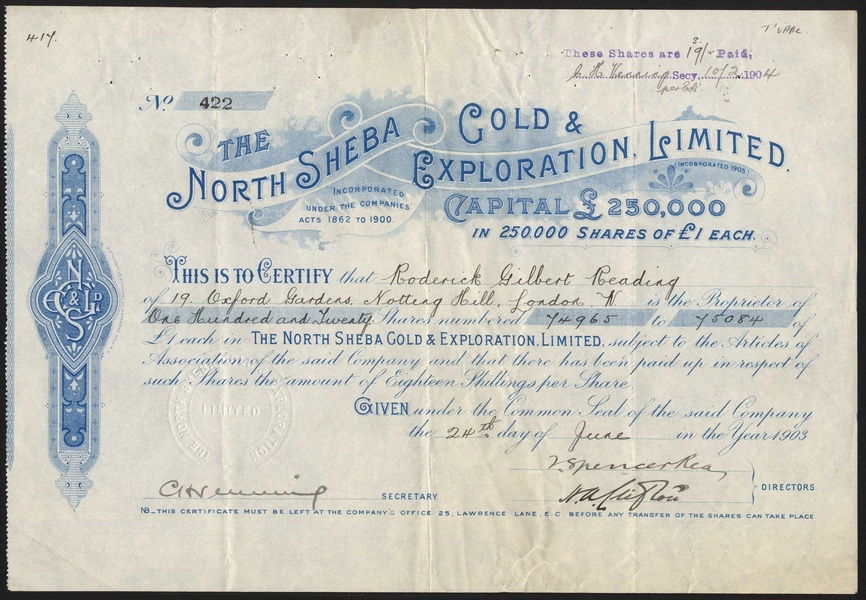 417.
These Shares are 19/- Paid,
Secy. 10/2 1904
No 422
THE NORTH SHEBA GOLD & EXPLORATION, LIMITED.
(INCORPORATED 1903)
INCORPORATED
UNDER THE COMPANIES
ACTS 1862 TO 1900.
CAPITAL £ 250,000
IN 250,000 SHARES OF £1 EACH.
THIS IS TO CERTIFY that Roderick Gilbert Reading
of 19. Oxford Gardens, Notting Hill, London W is the Proprietor of
One Hundred and Twenty Shares numbered 74965 to 75084 of
£1 each in THE NORTH SHEBA GOLD & EXPLORATION, LIMITED, subject to the Articles of
Association of the said Company and that there has been paid up in respect of
such Shares the amount of Eighteen Shillings per Share.
GIVEN under the Common Seal of the said Company
the 24th day of June in the Year 1903
LIMITED
SECRETARY
DIRECTORS.
NB_THIS CERTIFICATE MUST BE LEFT AT THE COMPANY'S OFFICE. 25, LAWRENCE LANE, E.C BEFORE ANY TRANSFER OF THE SHARES CAN TAKE PLACE